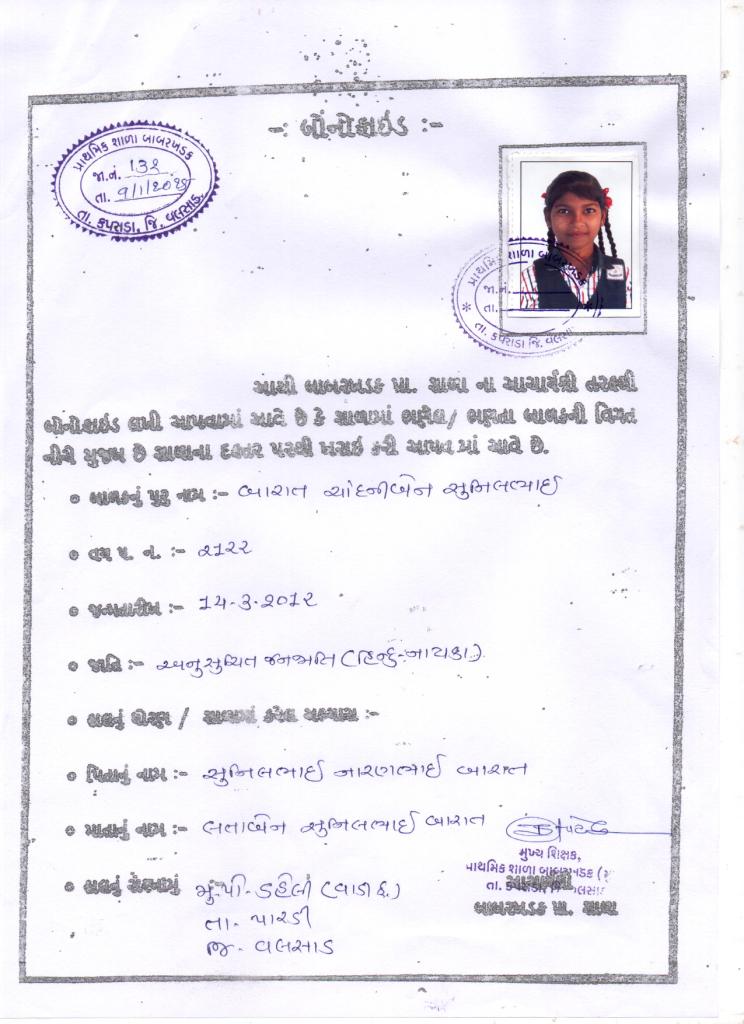 -: બોનોફાઇડ :-
પ્રાથમિક શાળા બાબરખડક
જા.નં. 132
તા. 9/1/202
તા. કપરાડા, જિ. વલસાડ.
પ્રાથમિક શાળા બાબરખડક
જા.નં.
તા.
તા. કપરાડા જિ. વલસા
આથી બાબરખડક પ્રા. શાળા ના આચાર્યશ્રી તરફથી
બોનોફાઇડ લખી આપવામાં આવે છે કે શાળામાં ભણેલ/ ભણતા બાળકની વિગત
નીચે મુજબ છે શાળાના દફતર પરથી ખરાઇ કરી આપવામાં આવે છે.
બાળકનું પુરુ નામ :- બારાત ચાંદનીબેન સુનિલભાઈ
વય પ. ન. :- ૨1૨૨
જન્મતારીખ :- 14-૩-૨૦1૨
જાતિ :- અનુસુચિત જનજાતિ (હિન્દુ-નાયકા)
હાલનું ધોરણ / શાળામાં કરેલ અભ્યાસ :-
પિતાનું નામ :- સુનિલભાઈ નારણભાઈ બારાત
માતાનું નામ :- લતાબેન સુનિલભાઈ બારાત
મુખ્ય શિક્ષક,
પ્રાથમિક શાળા બાબરખડક
તા. કપરાડા, જિ. વલસાડ
હાલનું સરનામું :- મુ. પી. ડહેલી (વાડી ફ.)
આચાર્યશ્રી
બાબરખડક પ્રા. શાળા
તા. પારડી
જિ. વલસાડ